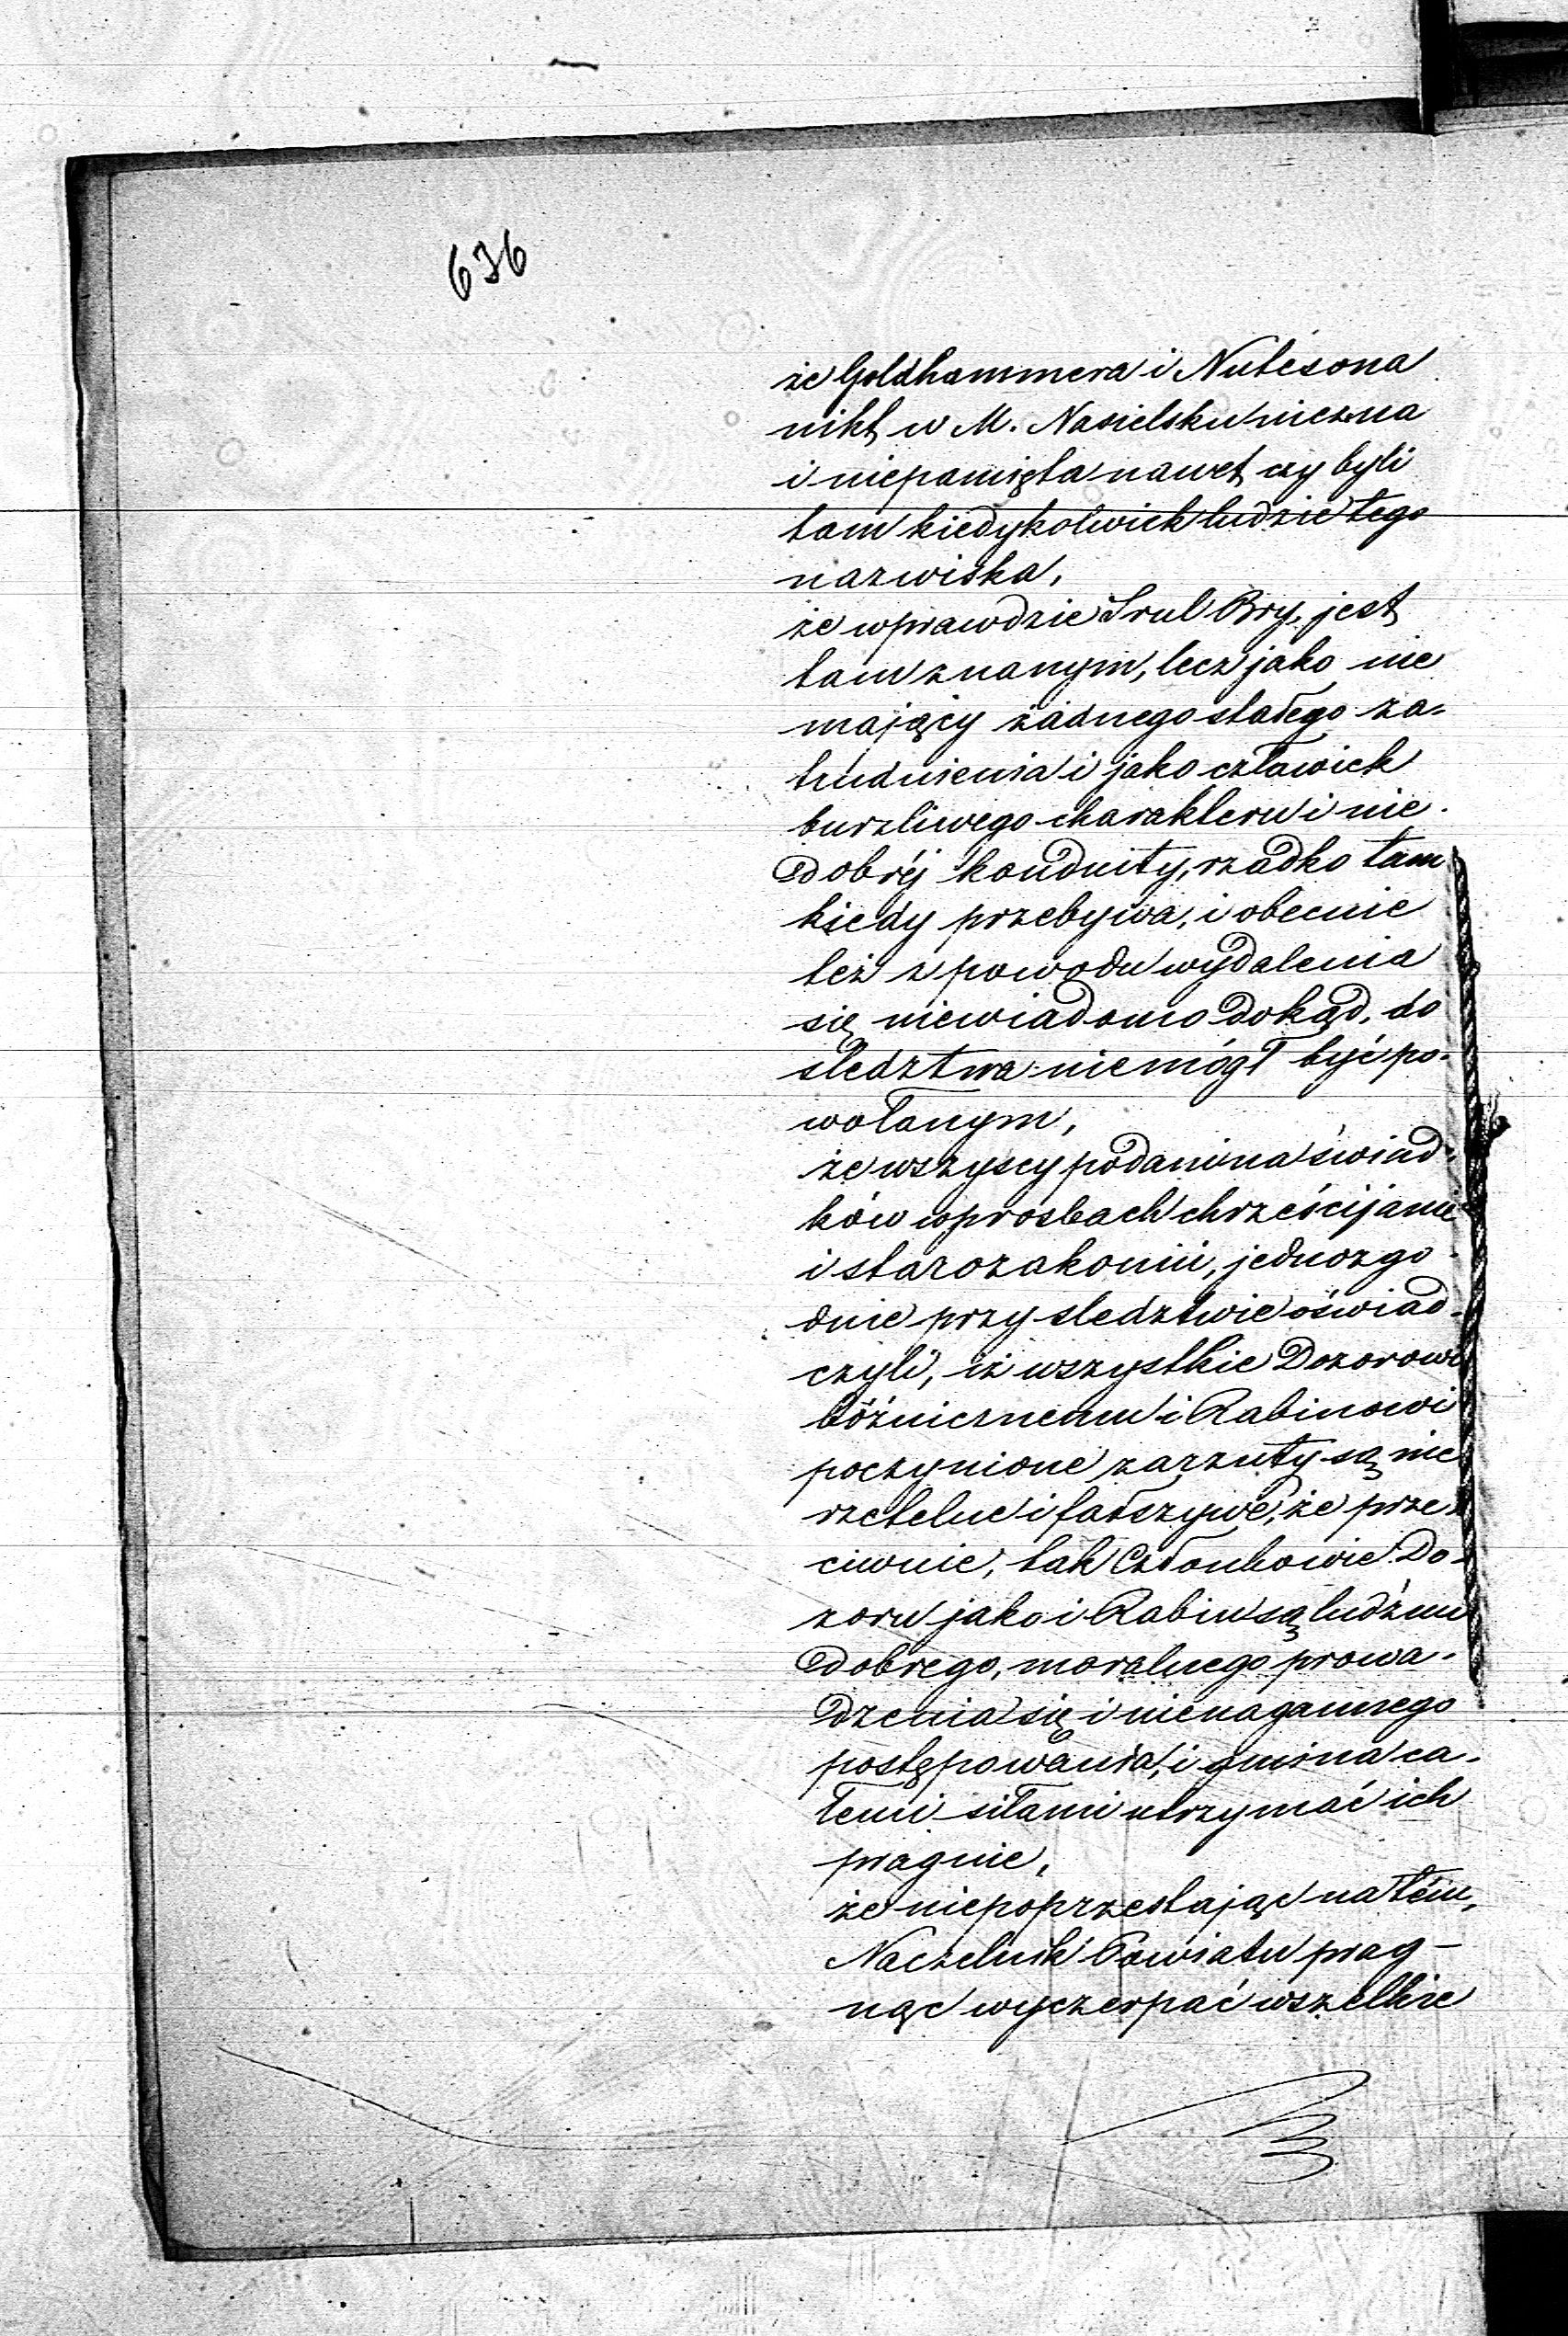 636
że Goldhammera i Nutesona
nikt w M. Nasielsku niezna
i niepamięta nawet czy byli
tam kiedykolwiek ludzie tego
nazwiska,
że wprawdzie Srul Bry, jest
tam znanym, lecz jako nie
mający żadnego stałego za-
trudnienia i jako człowiek
burzliwego charakteru i nie-
dobréj konduity, rzadko tam
kiedy przebywa, i obecnie
też z powodu wydalenia
się niewiadomo dokąd, do
śledztwa niemógł być po-
wołanym,
że wszyscy podani na świad-
ków w prośbach chrześcijanie
i starozakonni, jednozgo-
dnie przy śledztwie oświad-
czyli, iż wszystkie Dozorowi
bóżnicznemu i Rabinowi
poczynione zarzuty są nie
rzetelne i fałszywe, że prze-
ciwnie, tak Członkowie Do-
zoru jako i Rabin są ludźmi
dobrego, moralnego prowa-
dzenia się i nienagannego
postępowania, i gmina ca-
łemi siłami utrzymać ich
pragnie,
że niepoprzestając na tém,
Naczelnik Powiatu prag-
nąc wyczerpać wszelkie